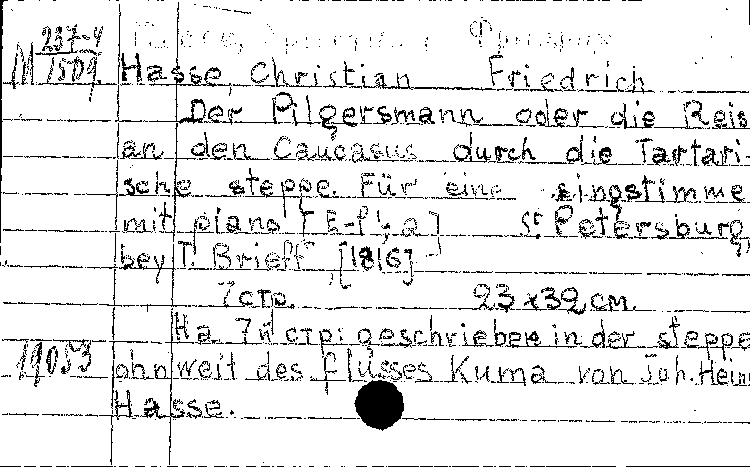 Гассе, Христиан Фридрих
М 237-4
1509
Hasse, Christian Friedrich
Der Pilgersmann oder die Reis
an den Caucasus durch die Tartari-
sche steppe. Für eine singstimme
mit piano [E-f¹, a] St Petersburg,
bey T. Brieff [1816]
7 стр. 23 x 32 см.
На 7й стр: geschrieben in der steppe
19053
ohnweit des flusses Kuma von Joh. Hein
Hasse.